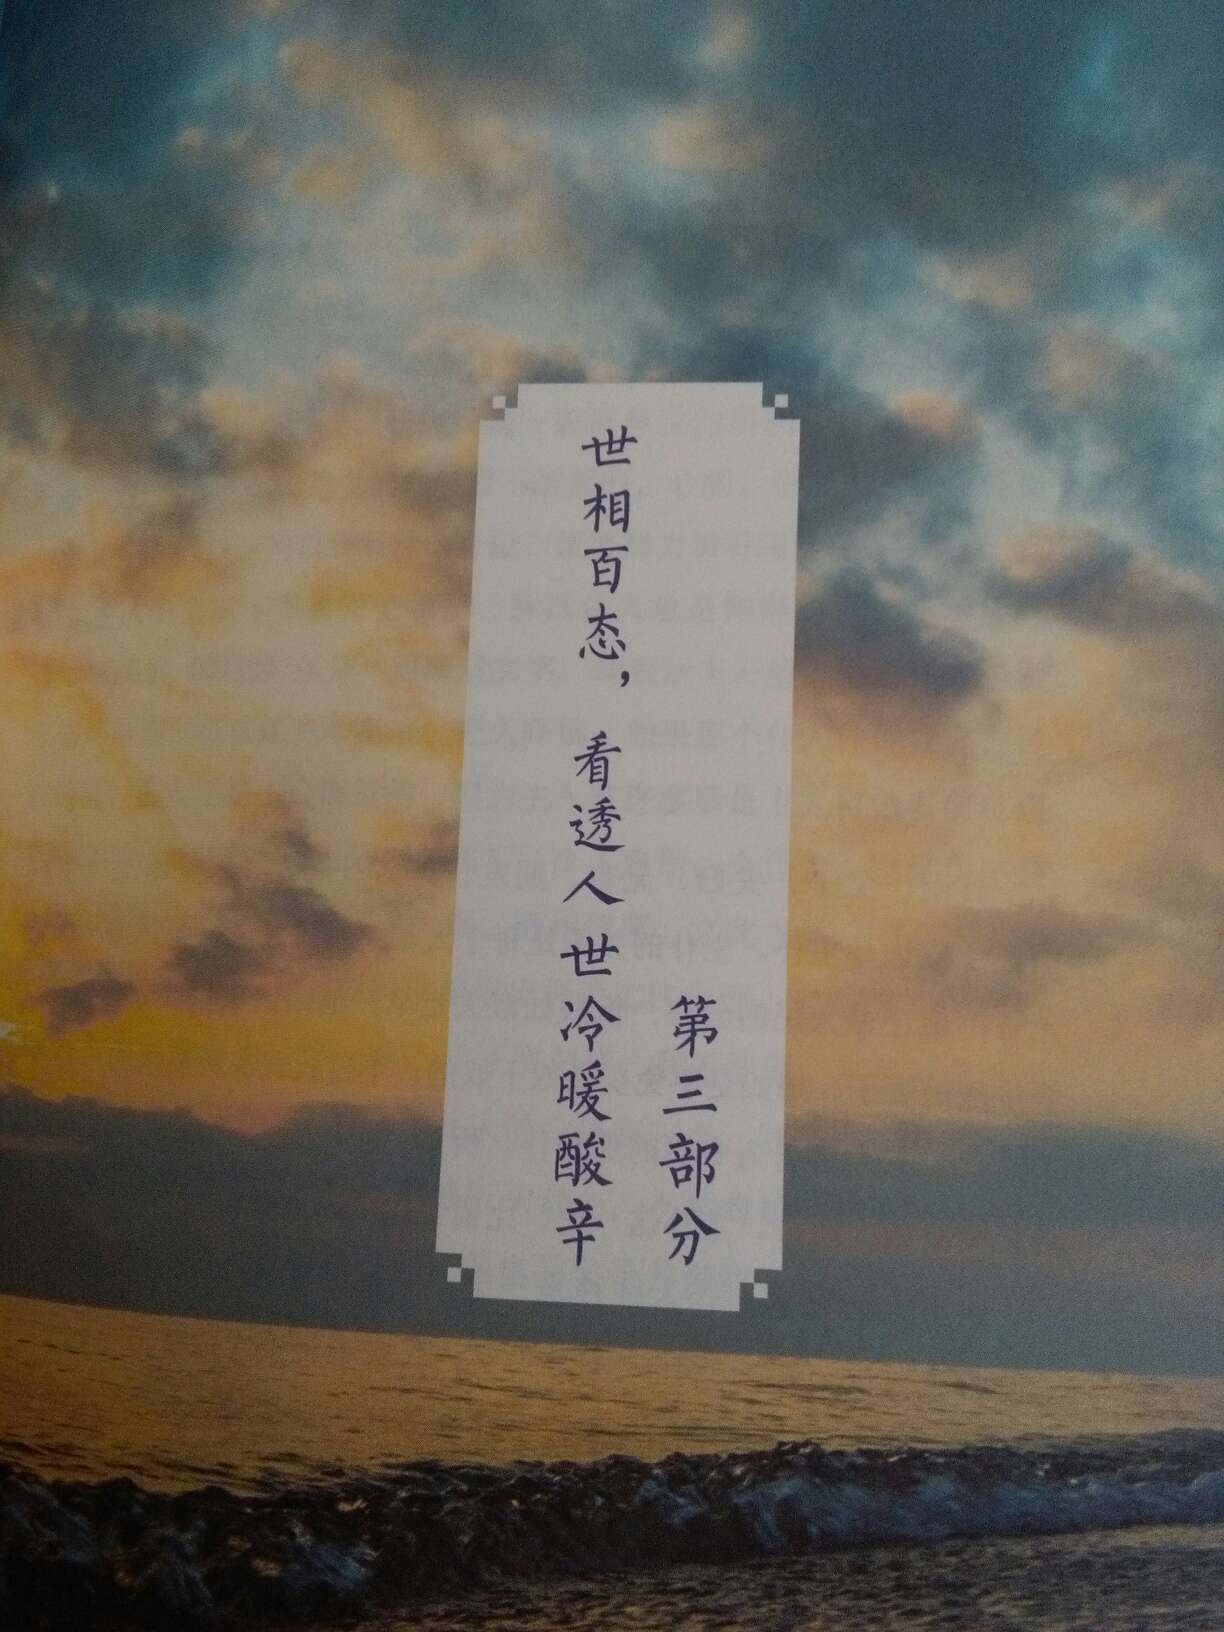 第三部分
世相百态，看透人世冷暖酸辛